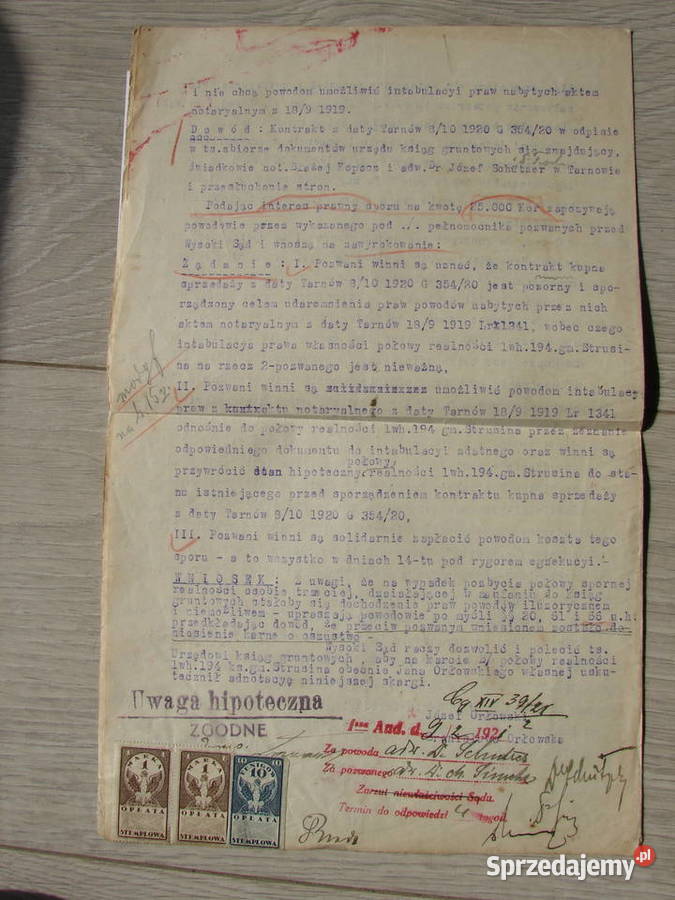 i nie chcą powodom umożliwić intabulacyi praw nabytych aktem
notaryalnym z 18/9 1919.
Dowód: Kontrakt z daty Tarnów 8/10 1920 G 354/20 w odpisie
w ts.zbiorze dokumentów urzędu ksiąg gruntowych się znajdujący,
świadkowie not. Błażej i adw.Dr Józef Schützer w Tarnowie
i przesłuchanie stron.
Podając interes prawny sporu na kwotę 25.000 Kor zapozywają
powodowie przez wykazanego pod ./. pełnomocnika pozwanych przed
Wysoki Sąd i wnoszą na zawyrokowanie:
Żądanie: I. Pozwani winni są uznać, że kontrakt kupna
sprzedaży z daty Tarnów 8/10 1920 G 354/20 jest pozorny i spo-
rządzony celem udaremnienia praw powodów nabytych przez nich
aktem notaryalnym z daty Tarnów 18/9 1919 Lr 1341, wobec czego
intabulacya prawa własności połowy realności lwh.194.gm.Strusi-
na na rzecz 2-pozwanego jest nieważną,
II. Pozwani winni są umożliwić powodom intabulacy
praw z kontraktu notaryalnego z daty Tarnów 18/9 1919 Lr 1341
odnośnie do połowy realności lwh.194 gm.Strusina przez zeznanie
odpowiedniego dokumentu do intabulacyi zdatnego oraz winni są
przywrócić stan hipoteczny połowy realności lwh.194.gm.Strusina do sta-
nu istniejącego przed sporządzeniem kontraktu kupna sprzedaży
z daty Tarnów 8/10 1920 G 354/20,
III. Pozwani winni są solidarnie zapłacić powodom koszta tego
sporu - a to wszystko w dniach 14-tu pod rygorem egzekucyi.
WNIOSEK: Z uwagi, że na wypadek pozbycia połowy spornej
realności osobie trzeciej, działającej w zaufaniu do ksiąg
gruntowych stałoby się dochodzenie praw powodów iluzorycznem
i niemożliwem - upraszają powodowie po myśli §§ 20, 61 i 66 u.h.
przedkładając dowód, że przeciw pozwanym wniesionem zostało do-
niesienie karne o oszustwo -
Wysoki Sąd raczy dozwolić i polecić ts.
Urzędowi ksiąg gruntowych, aby na karcie połowy realności
lwh.194 ks.gm.Strusina obecnie Jana Orłowskiego własnej usku-
tecznił adnotacyę niniejszej skargi.
Cg XIV 39/21
Uwaga hipoteczna
Józef Orłowski
ZGODNE
Aud. d. 9/2 1921
Orłowska
Za powoda adw. Dr. Schützer
Za pozwanego adw. Dr.
Zarzut niewłaściwości Sądu.
Termin do odpowiedzi 4 tygod.
MARKA
1
OPŁATA
STEMPLOWA
MARKA
1
OPŁATA
STEMPLOWA
10
FENIGÓW
10
OPŁATA
STEMPLOWA
Sprzedajemy.pl